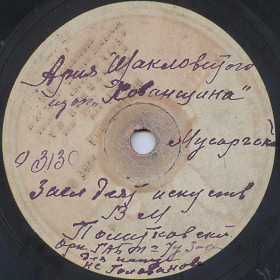 Ария Шакловитого
из оп. "Хованщина"
Мусоргск
9313
Засл деят искусств
В М
Политковск.
Орк. ГАБТ
Н С Голованова